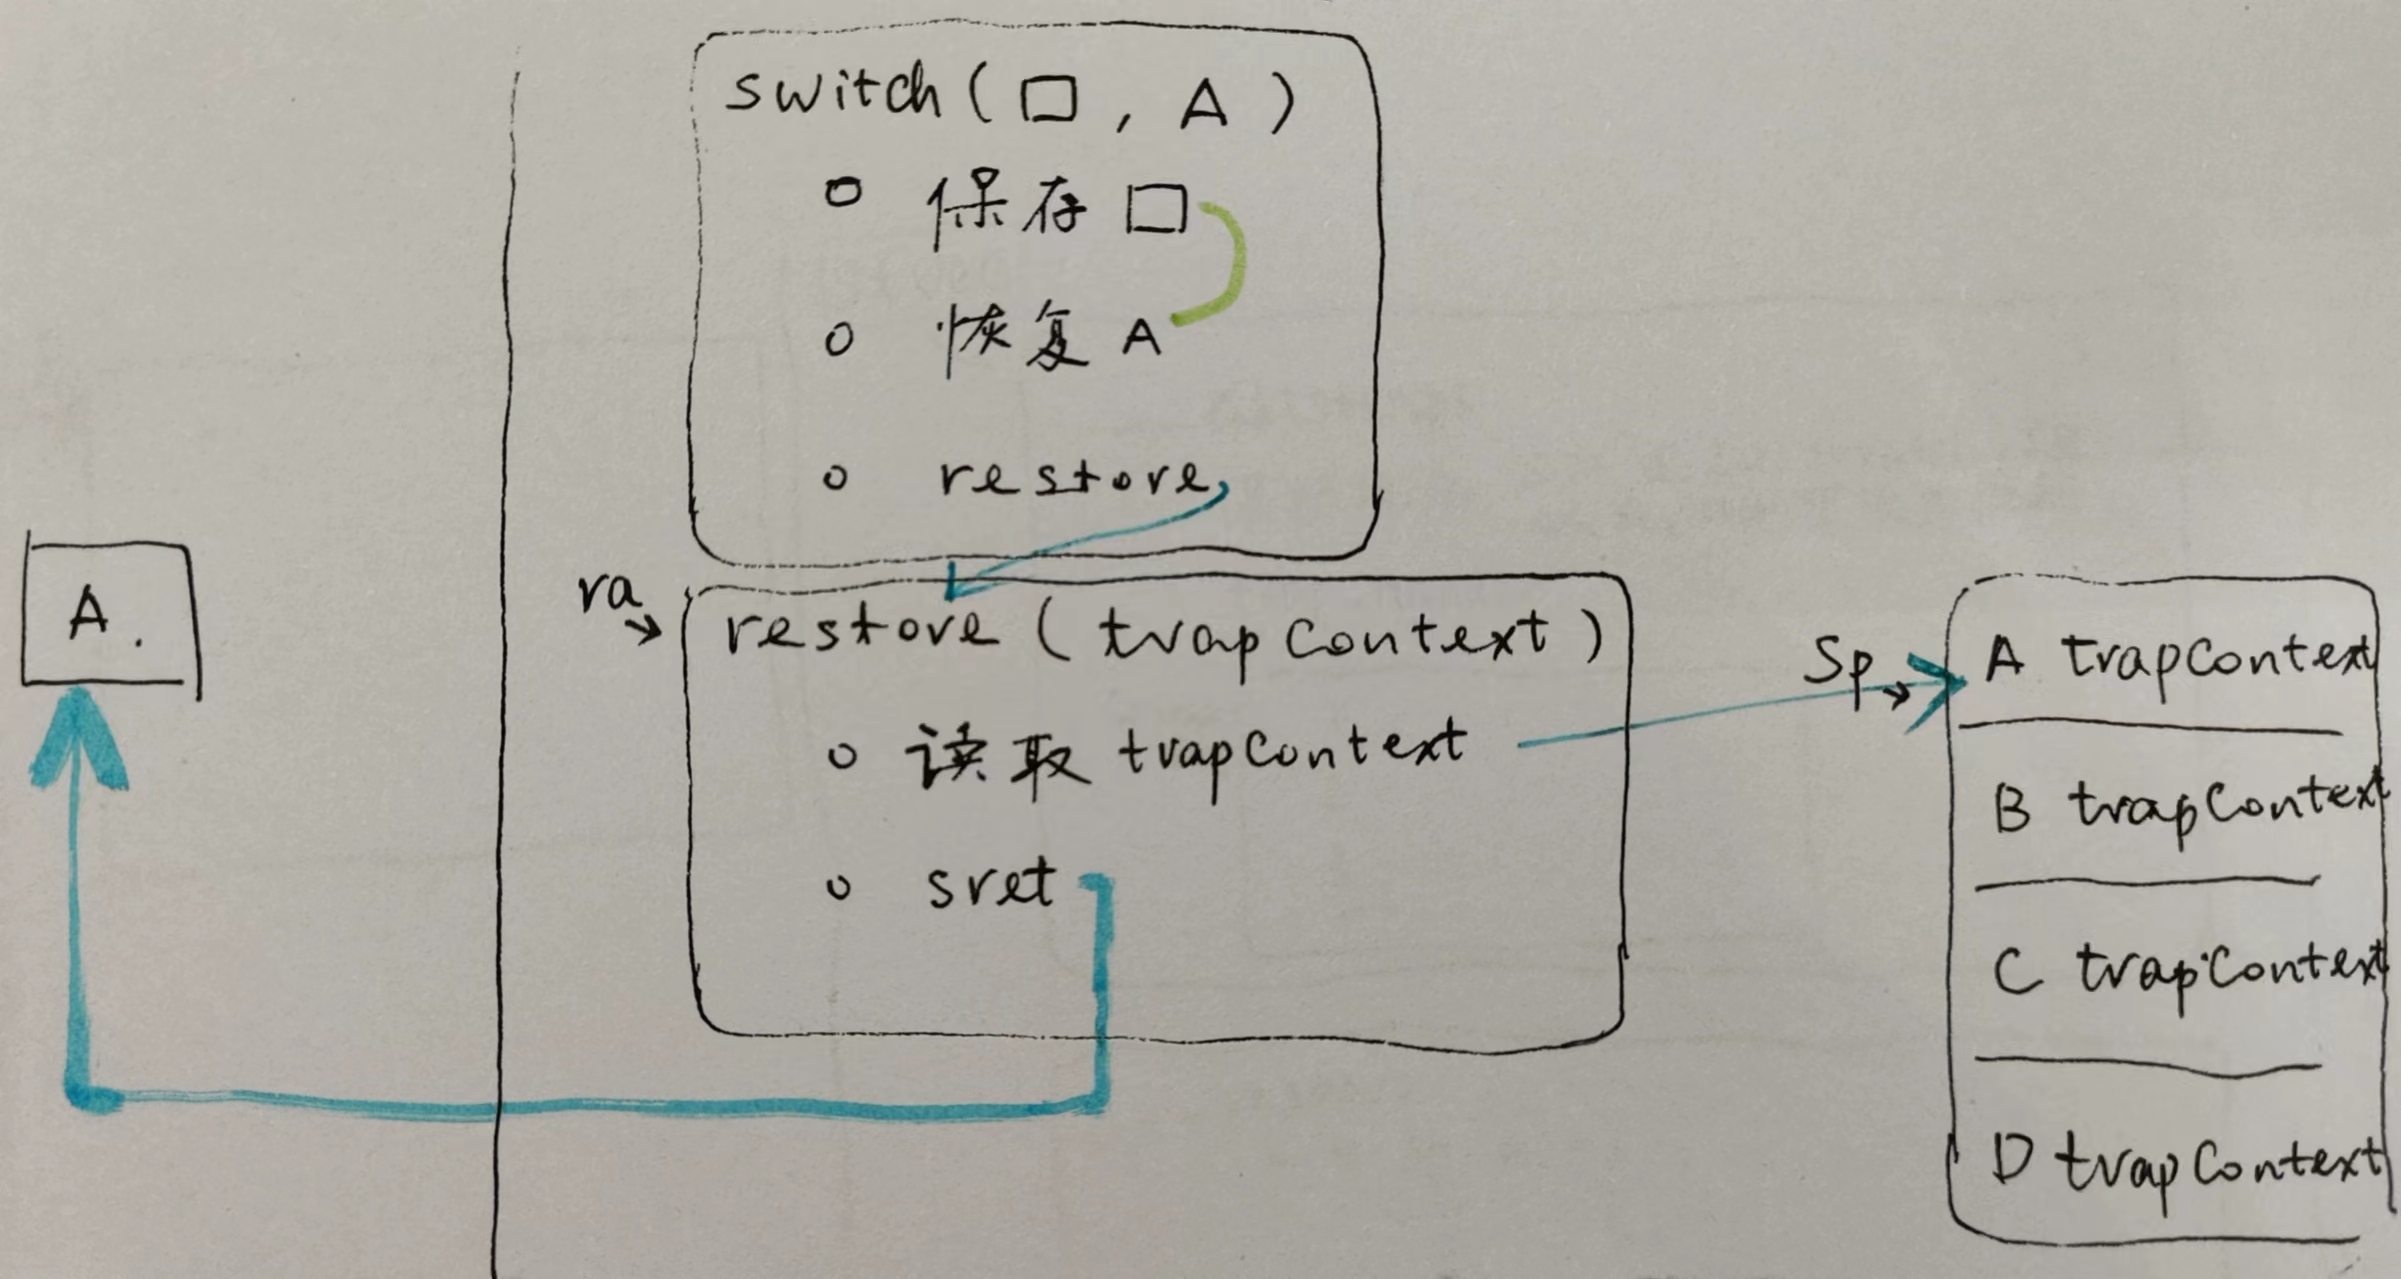 switch(□, A)
○ 保存□
○ 恢复A
○ restore
A.
ra→
restore(trapContext)
○ 读取trapContext
○ sret
Sp→
A trapContext
B trapContext
C trapContext
D trapContext